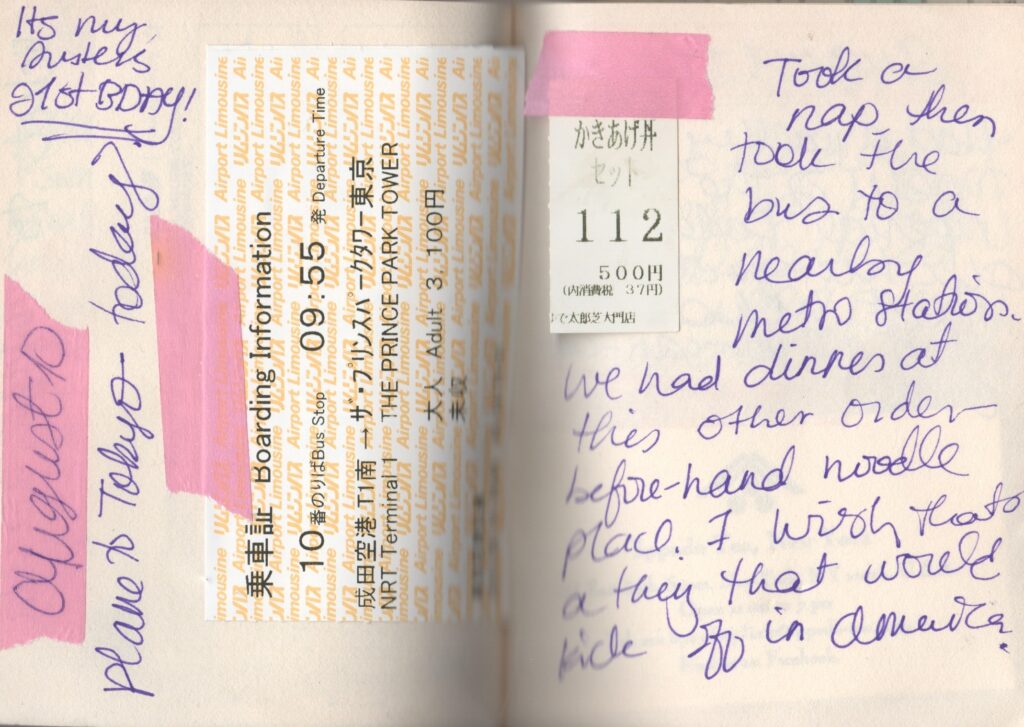 Its my
sisters
21st BDAY!
August 10
plane to Tokyo today
乗車証 Boarding Information
10番のりばBus Stop 09:55発 Departure Time
成田空港 T1南 → ザ・プリンスパークタワー東京
NRT Terminal 1 THE PRINCE PARK TOWER
大人 Adult 3,100円
未収
Airport Limousine リムジンバス
かきあげ丼
セット
112
500円
(内消費税 37円)
で太郎芝大門店
Took a
nap, then
took the
bus to a
nearby
metro station.
We had dinner at
this other order
before-hand noodle
place. I wish thats
a thing that would
kick off in America.